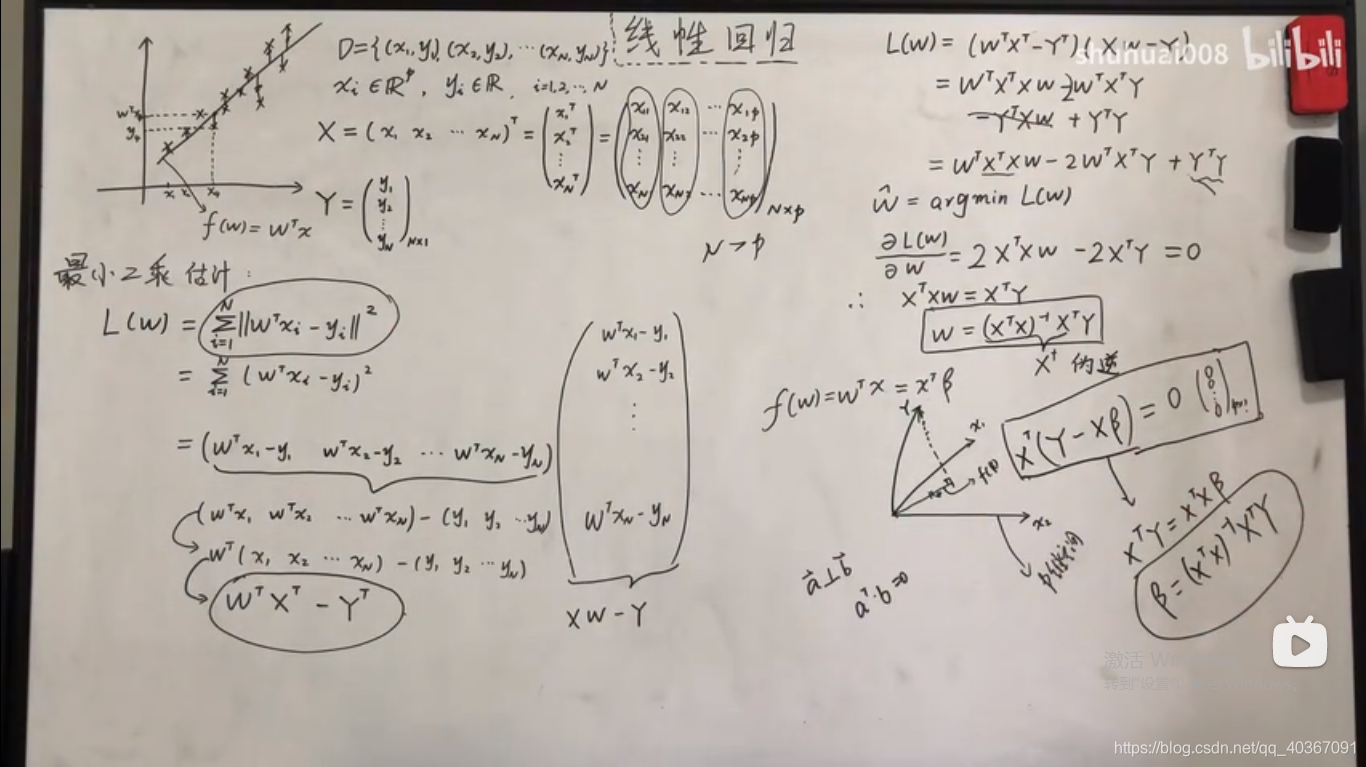 线性回归
D={(x₁,y₁),(x₂,y₂),⋯(x_N,y_N)}
xᵢ∈ℝᵖ, yᵢ∈ℝ, i=1,2,⋯,N
X = (x₁ x₂ ⋯ x_N)ᵀ = (x₁ᵀ x₂ᵀ ⋮ x_Nᵀ) = (x₁₁ x₁₂ ⋯ x₁p x₂₁ x₂₂ ⋯ x₂p ⋮ ⋮ ⋮ x_N₁ x_N₂ ⋯ x_Np)N×p
Y = (y₁ y₂ ⋮ y_N)N×1
N>p
f(w)=wᵀx
最小二乘估计:
L(w) = Σᵢ₌₁ᴺ ‖wᵀxᵢ-yᵢ‖²
= Σᵢ₌₁ᴺ (wᵀxᵢ-yᵢ)²
= (wᵀx₁-y₁ wᵀx₂-y₂ ⋯ wᵀx_N-y_N) (wᵀx₁-y₁ wᵀx₂-y₂ ⋮ wᵀx_N-y_N)
(wᵀx₁ wᵀx₂ ⋯ wᵀx_N)-(y₁ y₂ ⋯ y_N)
wᵀ(x₁ x₂ ⋯ x_N)-(y₁ y₂ ⋯ y_N)
wᵀXᵀ-Yᵀ
Xw-Y
L(w)=(wᵀXᵀ-Yᵀ)(Xw-Y)
= wᵀXᵀXw-2wᵀXᵀY
-YᵀXw + YᵀY
= wᵀXᵀXw-2wᵀXᵀY+YᵀY
ŵ = argmin L(w)
∂L(w)/∂w = 2XᵀXw-2XᵀY=0
∴ XᵀXw=XᵀY
w=(XᵀX)⁻¹XᵀY
X† 的逆
f(w)=wᵀx=xᵀβ
Xᵀ(Y-Xβ)=0
XᵀY=XᵀXβ
β=(XᵀX)⁻¹XᵀY
Y
x₁
x₂
a⊥b
aᵀ·b=0
shuhuai008 bilibili
https://blog.csdn.net/qq_40367091